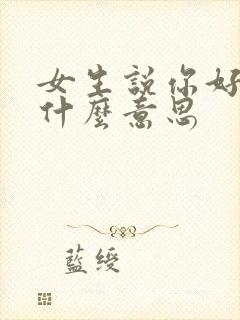 女生說你好
什麼意思
藍綬